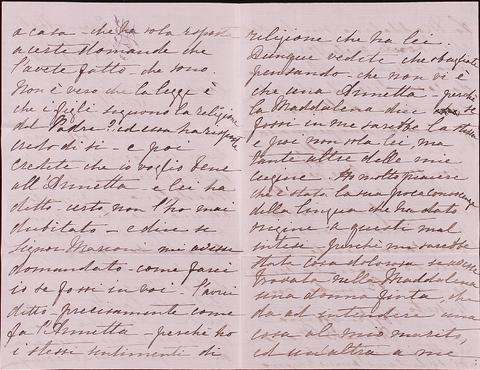 a casa - che ha solo risposto
a certe domande che
l'avete fatto - che sono.
Non è vero che la legge è
che i figli seguono la religione
del Padre? ed essa ha risposto
credo di si - e poi
credete che io voglio bene
all'Annetta - e lei ha
detto certo, non l'ho mai
dubitato - e dice se
Signor Marconi mi avesse
domandato - come farei
io se fossi in voi - l'avrei
ditto - precisamente come
fa l'Annetta - perchè ho
i stessi sentimenti di
religione che ha lei.
Dunque vedete che sbagliate
pensando - che non vi è
che una Annetta - perchè
la Maddalena dice se
fossi in me sarebbe la stessa
e poi non sola lei, ma
tante altre delle mie
cugine. Ho molto piacere
che è stata la sua poca conoscenza
della lingua che ha dato
origine a questi mal
intesi - perchè mi sarebbe
stata cosa dolorosa se avesse
trovata nella Maddalena
una donna finta, che
da ad intendere una
cosa al mio marito,
ed un'altra a me